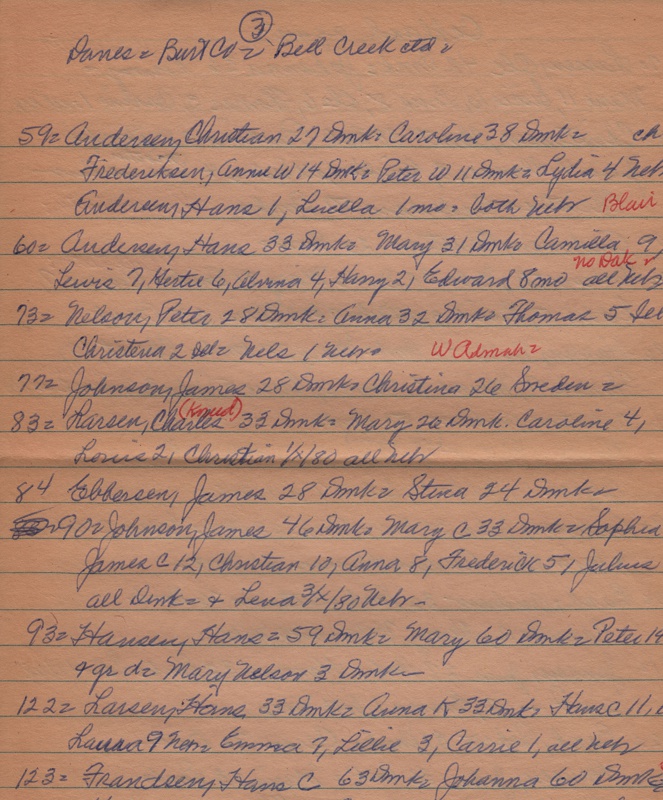 3
Danes = Burt Co = Bell Creek ctd =
59= Andersen, Christian 27 Dmk= Caroline 38 Dmk= ch
Frederiksen, Annie W 14 Dmk= Peter W 11 Dmk= Lydia 4 Neb
Andersen, Hans 1, Luella 1 mo= both Nebr Blair
60= Andersen, Hans 33 Dmk= Mary 31 Dmk= Camilla 9
no Dak
Lewis 7, Gertie 6, Alvina 4, Harry 2, Edward 8 mo all Nebr
73= Nelson, Peter 28 Dmk= Anna 32 Dmk= Thomas 5
Christena 2 = Nels 1 Nebr= W Admah=
77= Johnson, James 28 Dmk= Christina 26 Sweden =
(Knud)
83= Larsen, Charles 33 Dmk= Mary 26 Dmk. Caroline 4,
Louis 2, Christian 1/x/80 all Nebr
84 Ebbersen, James 28 Dmk= Stina 24 Dmk=
=90= Johnson, James 46 Dmk= Mary C 33 Dmk= Sophia
James C 12, Christian 10, Anna 8, Frederick 5, Julius
all Dmk= + Lena 3/x/80 Nebr-
93= Hansen, Hans = 59 Dmk= Mary 60 Dmk= Peter 14
+ gr d= Mary Nelson 3 Dmk=
122= Larsen, Hans 33 Dmk= Anna K 33 Dmk= Hans C 11,
Laura 9 = Emma 7, Lillie 3, Carrie 1, all Nebr
123= Frandsen, Hans C 63 Dmk= Johanna 60 Dmk=